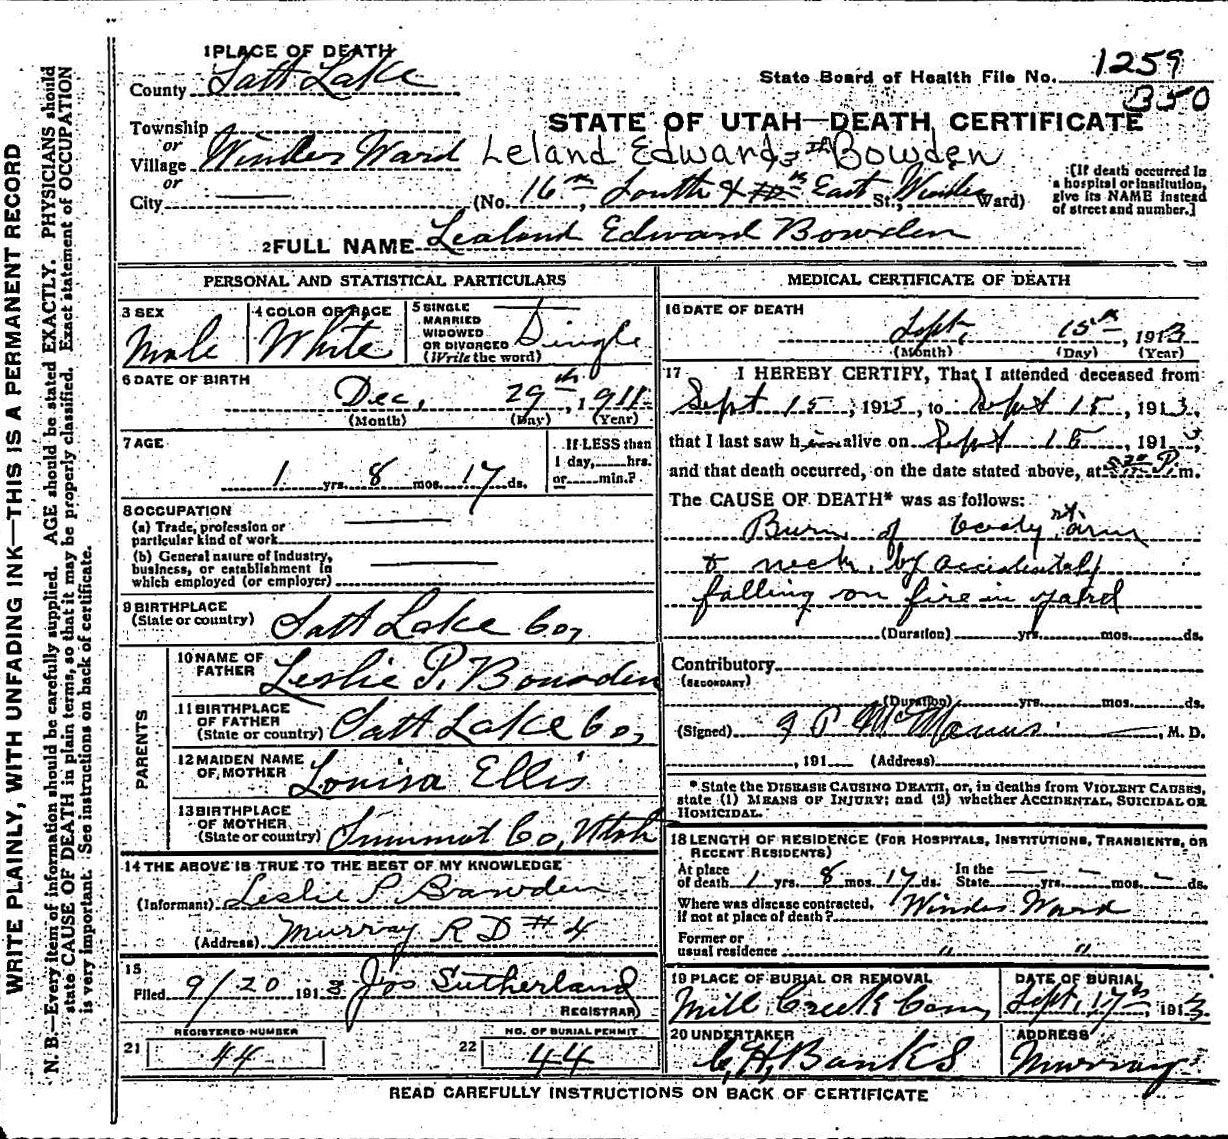 1 PLACE OF DEATH
County Salt Lake
State Board of Health File No. 1259
350
STATE OF UTAH—DEATH CERTIFICATE
Township
or
Village Winder Ward
Leland Edward Bowden
or
City
(No. 16th South & East St., Winder Ward)
[If death occurred in a hospital or institution, give its NAME instead of street and number.]
2 FULL NAME Lealand Edward Bowden
PERSONAL AND STATISTICAL PARTICULARS
3 SEX
Male
4 COLOR OR RACE
White
5 SINGLE
MARRIED
WIDOWED
OR DIVORCED
(Write the word)
Single
6 DATE OF BIRTH
Dec, 29th, 1911
(Month) (Day) (Year)
7 AGE
1 yrs. 8 mos. 17 ds.
If LESS than
1 day, hrs.
or min.?
8 OCCUPATION
(a) Trade, profession or
particular kind of work
(b) General nature of industry,
business, or establishment in
which employed (or employer)
9 BIRTHPLACE
(State or country) Salt Lake Co,
PARENTS
10 NAME OF
FATHER Leslie P. Bowden
11 BIRTHPLACE
OF FATHER
(State or country) Salt Lake Co,
12 MAIDEN NAME
OF MOTHER Louisa Ellis
13 BIRTHPLACE
OF MOTHER
(State or country) Summit Co, Utah
14 THE ABOVE IS TRUE TO THE BEST OF MY KNOWLEDGE
(Informant) Leslie P Bawden
(Address) Murray R D # 4
15
Filed 9/20 191 Jos Sutherland
REGISTRAR
REGISTERED NUMBER
21 44
NO. OF BURIAL PERMIT
22 44
MEDICAL CERTIFICATE OF DEATH
16 DATE OF DEATH
Sept, 15th, 1913
(Month) (Day) (Year)
17 I HEREBY CERTIFY, That I attended deceased from
Sept 15, 1913, to Sept 15, 1913,
that I last saw him alive on Sept 15, 1913,
and that death occurred, on the date stated above, at P. m.
The CAUSE OF DEATH* was as follows:
Burn of body rt. arm
& neck, by accidentaly
falling on fire in yard
(Duration) yrs. mos. ds.
Contributory
(SECONDARY)
(Duration) yrs. mos. ds.
(Signed) McManus, M. D.
, 191 (Address)
* State the DISEASE CAUSING DEATH, or, in deaths from VIOLENT CAUSES,
state (1) MEANS OF INJURY; and (2) whether ACCIDENTAL, SUICIDAL OR
HOMICIDAL.
18 LENGTH OF RESIDENCE (FOR HOSPITALS, INSTITUTIONS, TRANSIENTS, OR
RECENT RESIDENTS)
At place
of death 1 yrs. 8 mos. 17 ds. In the State yrs. mos. ds.
Where was disease contracted,
if not at place of death? Winder Ward
Former or
usual residence " "
19 PLACE OF BURIAL OR REMOVAL
Mill Creek Cem,
DATE OF BURIAL
Sept, 17th, 1913
20 UNDERTAKER
C, H, Banks
ADDRESS
Murray
READ CAREFULLY INSTRUCTIONS ON BACK OF CERTIFICATE
WRITE PLAINLY, WITH UNFADING INK—THIS IS A PERMANENT RECORD
N. B.—Every item of information should be carefully supplied. AGE should be stated EXACTLY. PHYSICIANS should
state CAUSE OF DEATH in plain terms, so that it may be properly classified. Exact statement of OCCUPATION
is very important. See instructions on back of certificate.